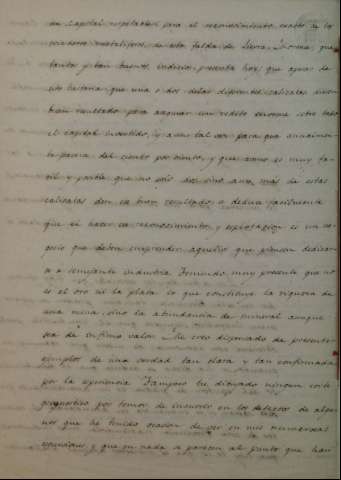 un capital respetable para el reconocimiento exacto de los
criaderos metalíferos de esta falda de Sierra
tantos y tan buenos indicios presenta hoy; que apenas de
cio bastaria que una o dos de las diferentes calicatas
resultado para asegurar un rédito enorme sobre todo
el capital invertido, y acaso tal vez para que anualmen-
te pasara del ciento por ciento, y que como es muy fa-
cil y posible que no solo dos sino aun mas de estas
calicatas den un buen resultado, se deduce facilmente
que el hacer su reconocimiento y esplotacion es un ne-
gocio que deben emprender aquellos que piensen dedicar-
se a semejante industria teniendo muy presente que no
es el oro ni la plata lo que constituye la riqueza de
una mina, sino la abundancia de mineral aunque
sea de infimo valor. Me creo dispensado de presentar
ejemplos de una verdad tan clara y tan confirmada
por la esperiencia Tampoco he dibujado ningun corte
geognostico por temor de incurrir en los defectos de algu-
nos que he tenido ocasion de ver en mis numerosas
escursiones y que en nada se parecen al punto que han